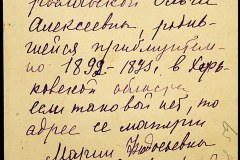 Алексеевны, родив-
шейся приблизитель-
но 1892-1893, в Харь-
ковской области
если таковой нет, то
адрес ее матери
Марии Федосьевны